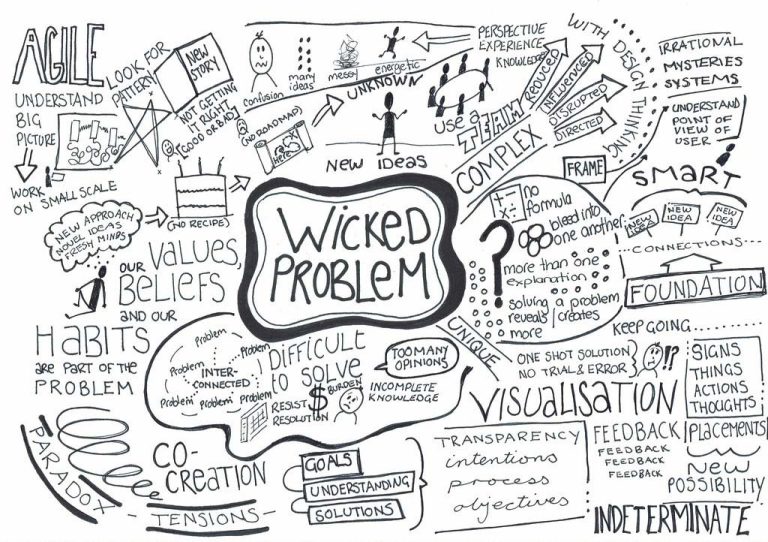 AGILE
UNDERSTAND
BIG
PICTURE
WORK
ON SMALL SCALE
LOOK FOR
PATTERN
NEW
STORY
NOT GETTING
IT RIGHT
(GOOD OR BAD)
confusion
many
ideas
messy
energetic
UNKNOWN
(NO ROADMAP)
HERE
NEW IDEAS
PERSPECTIVE
EXPERIENCE
KNOWLEDGE
use a
TEAM
COMPLEX
REDUCED
INFLUENCED
DISRUPTED
DIRECTED
WITH DESIGN THINKING
IRRATIONAL
MYSTERIES
SYSTEMS
UNDERSTAND
POINT OF
VIEW OF
USER
FRAME
SMART
NEW
IDEA
NEW
IDEA
NEW
IDEA
...CONNECTIONS...
FOUNDATION
KEEP GOING........
NEW APPROACH
NOVEL IDEAS
FRESH MINDS
(NO RECIPE)
OUR
VALUES,
BELIEFS
AND OUR
HABITS
ARE PART OF THE
PROBLEM
WICKED
PROBLEM
no
formula
bleed into
one another
?
more than one
explanation
solving a problem
reveals/creates
more
UNIQUE
ONE SHOT SOLUTION
NO TRIAL & ERROR
!?
Problem
Problem
Problem
Problem
Problem
Problem
INTER-
CONNECTED
DIFFICULT
to SOLVE
RESIST
RESOLUTION
$
BURDEN
TOO MANY
OPINIONS
INCOMPLETE
KNOWLEDGE
VISUALISATION
SIGNS
THINGS
ACTIONS
THOUGHTS
PLACEMENTS
NEW
POSSIBILITY
FEEDBACK
FEEDBACK
FEEDBACK
FEEDBACK
INDETERMINATE
TRANSPARENCY
intentions
process
objectives
GOALS
UNDERSTANDING
SOLUTIONS
CO-
CREATION
- TENSIONS -
PARADOX